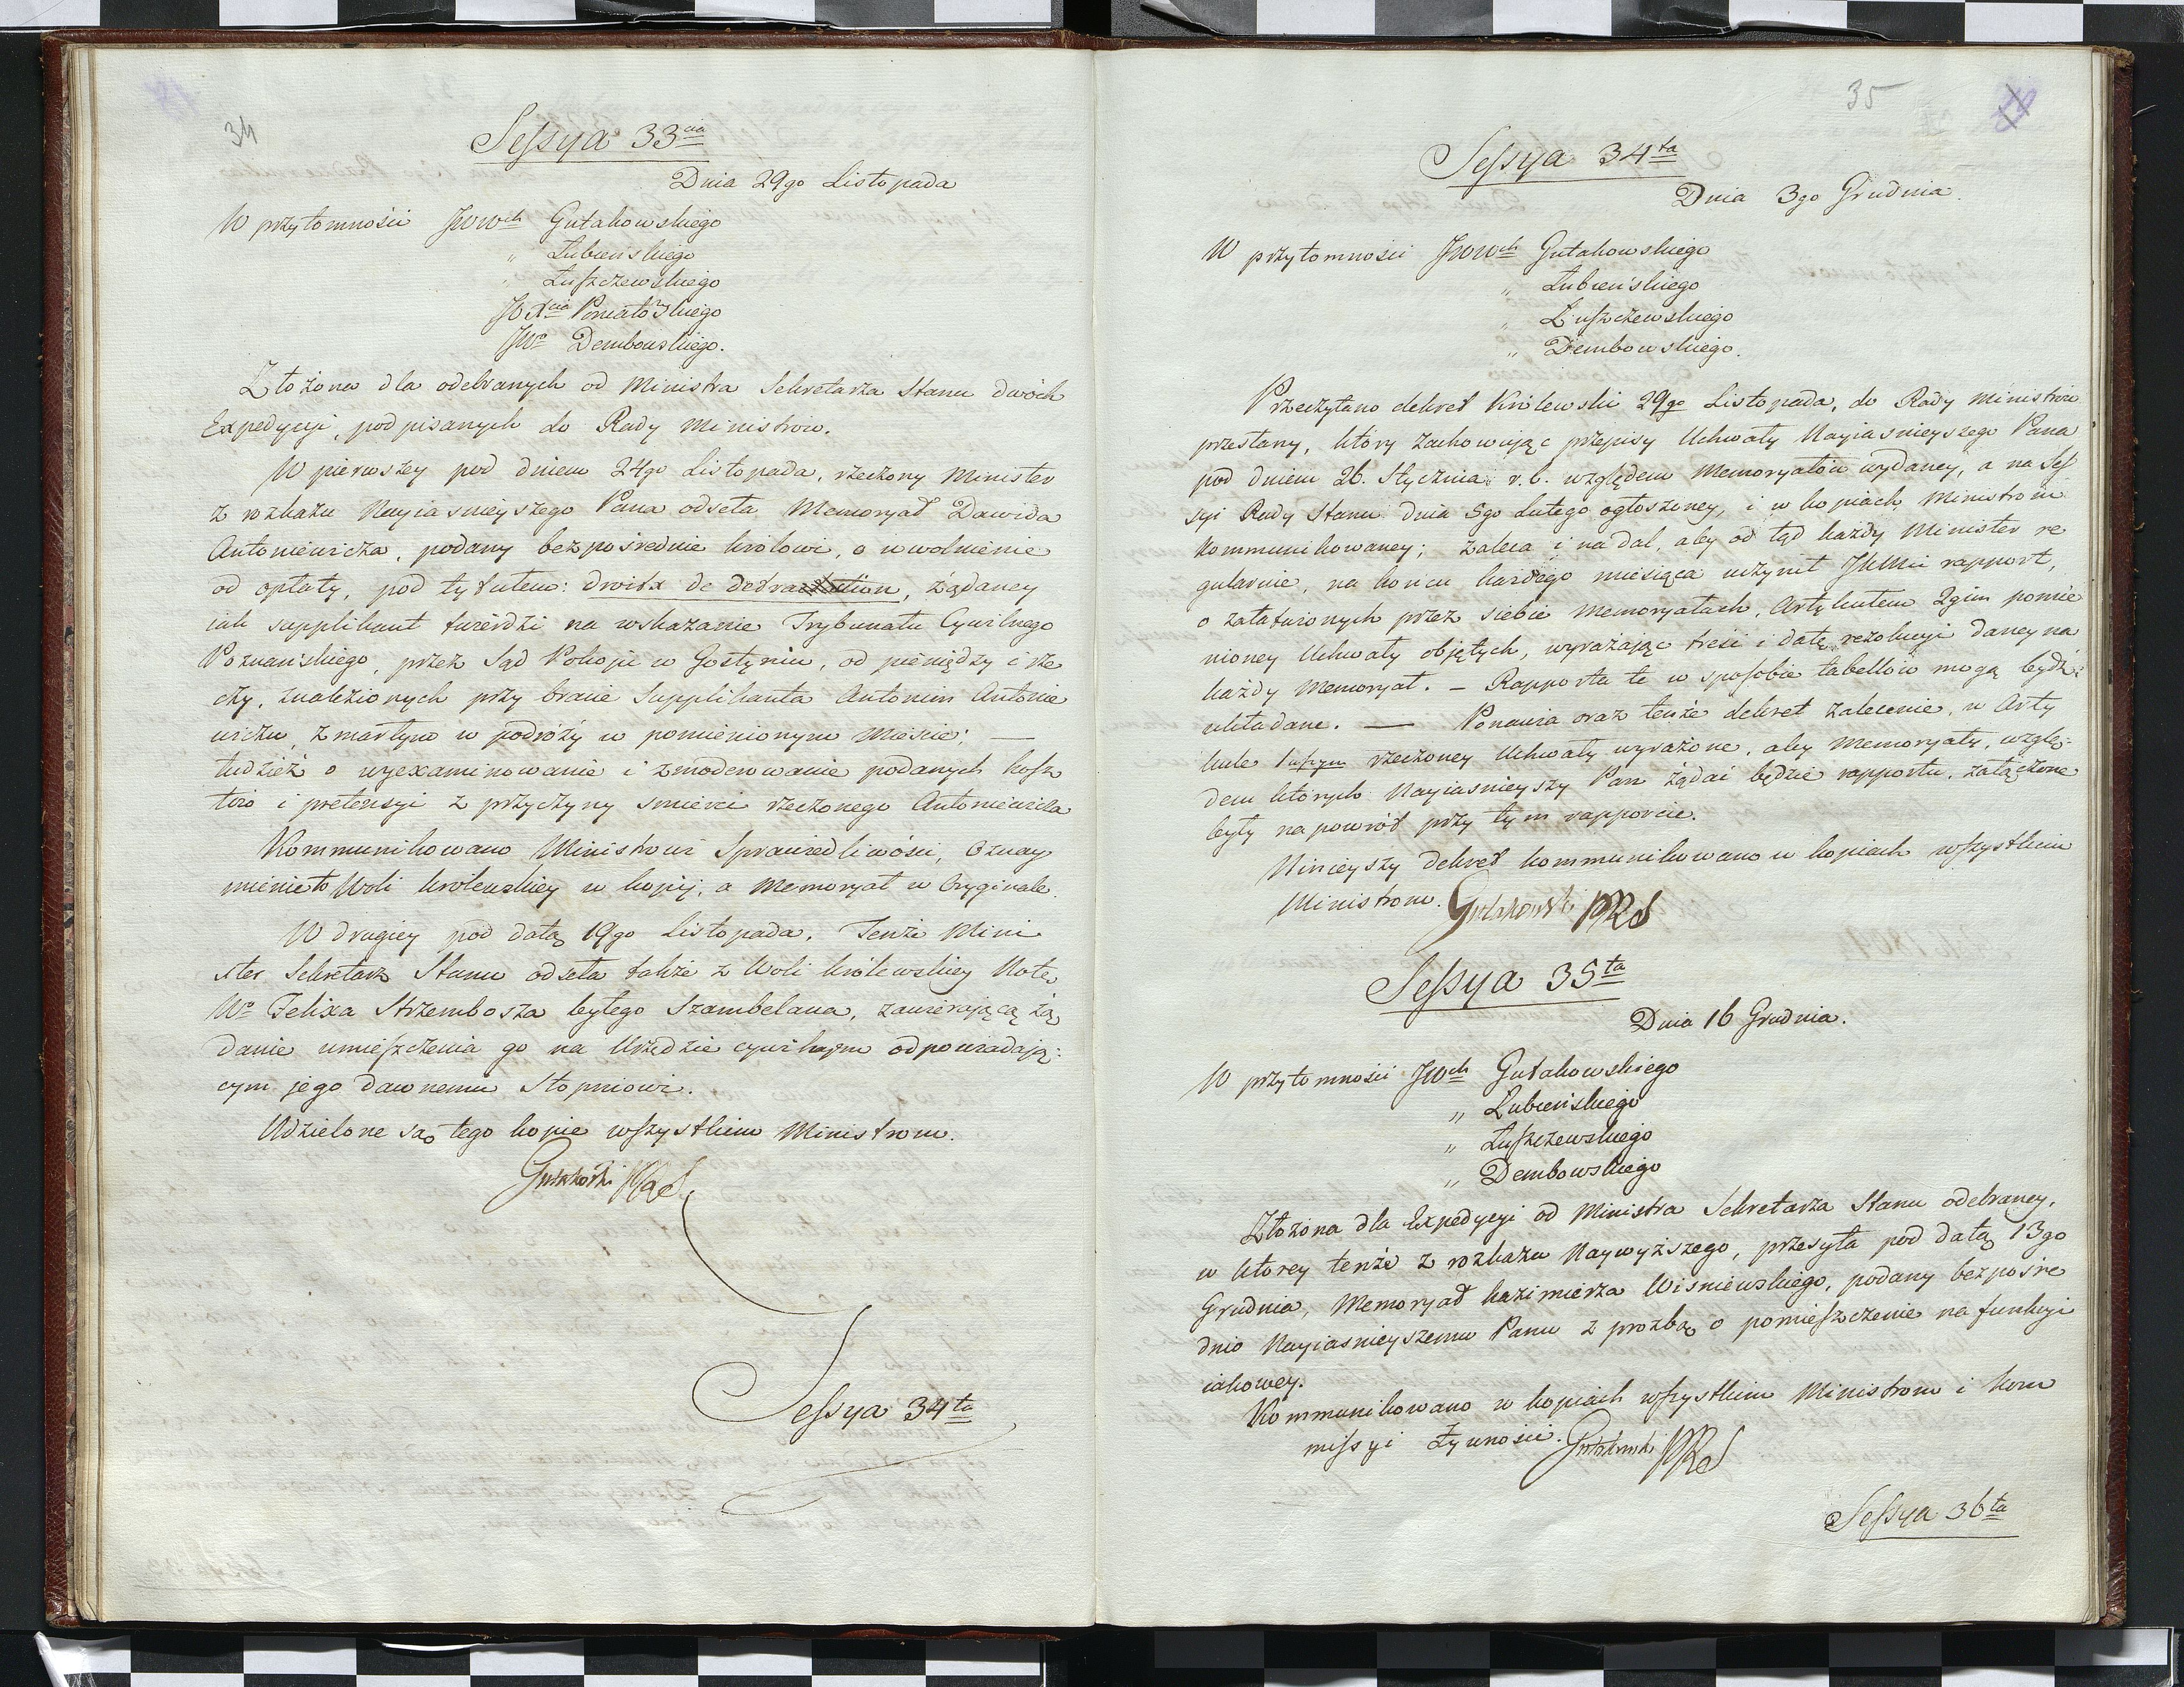 34
Sessya 33cia
Dnia 29go Listopada
W przytomności JWWch Gutakowskiego
" Łubieńskiego
" Łuszczewskiego
JO Xcia Poniato3kiego
JWo Dembowskiego.
Złożona dla odebranych od Ministra Sekretarza Stanu dwóch
Expedycyi, podpisanych do Rady Ministrow.
W pierwszey pod dniem 24go Listopada, rzeczony Minister
z rozkazu Nayiasnieyszego Pana odseła Memoryał Dawida
Antoniewicza, podany bezpośrednie krolowi, o uwolnienie
od opłaty, pod tytułem: droits de detraction, żądaney
iak supplikant twierdzi na wskazanie Trybunału Cywilnego
Poznańskiego, przez Sąd Pokoju w Gostyniu, od pieniędzy i rze
czy, znalezionych przy bracie Supplikanta Antonim Antonie
wiczu, zmarłym w podróży w pomienionym Mieście; —
tudzież o wyexaminowanie i zmoderowanie podanych kosz
tów i pretensyi z przyczyny smierci rzeczonego Antoniewicza
Kommunikowano Ministrowi Sprawiedliwości, Oznay
mienie to Woli krolewskiey w kopij, a Memoryał w Oryginale.
W drugiey pod datą 19go Listopada. Tenże Mini
ster Sekretarz Stanu odseła także z Woli królewskiey Notę
Wo Felixa Strzembosza byłego Szambelana, zawierającą żą
danie umieszczenia go na Urzędzie cywilnym odpowiadają:
cym jego dawnemu Stopniowi.
Udzielone są tego kopie wszystkim Ministrom.
Gutakowski PRS
Sessya 34ta
35
Sessya 34ta
Dnia 3go Grudnia.
W przytomności JWWch Gutakowskiego
" Łubieńskiego
" Łuszczewskiego
" Dembowskiego.
Przeczytano dekret Królewski 29go Listopada, do Rady Ministrów
przesłany, który zachowując przepisy Uchwały Nayiasnieyszego Pana
pod dniem 26. Stycznia r. b. względem Memoryałów wydaney, a na Ses
syi Rady Stanu dnia 5go Lutego ogłoszoney, i w kopiach Ministrom
kommunikowaney; zaleca i nadal, aby od tąd każdy Minister re
gularnie, na końcu każdego miesiąca uczynił JKMci rapport,
o załatwionych przez siebie Memoryałach, Artykułem 2gim pomie
nioney Uchwały objętych, wyrażając treść i datę rezolucyi daney na
każdy Memoryał. — Rapporta te w sposobie tabellów mogą bydź
układane. — Ponawia oraz tenże dekret zalecenie, w Arty
kule 1wszym rzeczoney Uchwały wyrażone, aby Memoryały, wzglę:
dem których Nayiasnieyszy Pan żądać będzie rapportu, załączone
były napowrót przy tym rapporcie.
Ninieyszy dekret kommunikowano w kopiach wszystkim
Ministrom. Gutakowski PRS
Sessya 35ta
Dnia 16 Grudnia.
W przytomności JWch Gutakowskiego
" Łubieńskiego
" Łuszczewskiego
" Dembowskiego
Złożona dla Expedycyi od Ministra Sekretarza Stanu odebraney,
w ktorey tenże z rozkazu Naywyższego, przesyła pod datą 13go
Grudnia, Memoryał kazimierza Wisniewskiego, podany bezpośre
dnio Nayiasnieyszemu Panu z prozbą o pomieszczenie na funkcyi
iakowey.
Kommunikowano w kopiach wszystkim Ministrom i Kom
missyi Żywności. Gutakowski PRS
Sessya 36ta